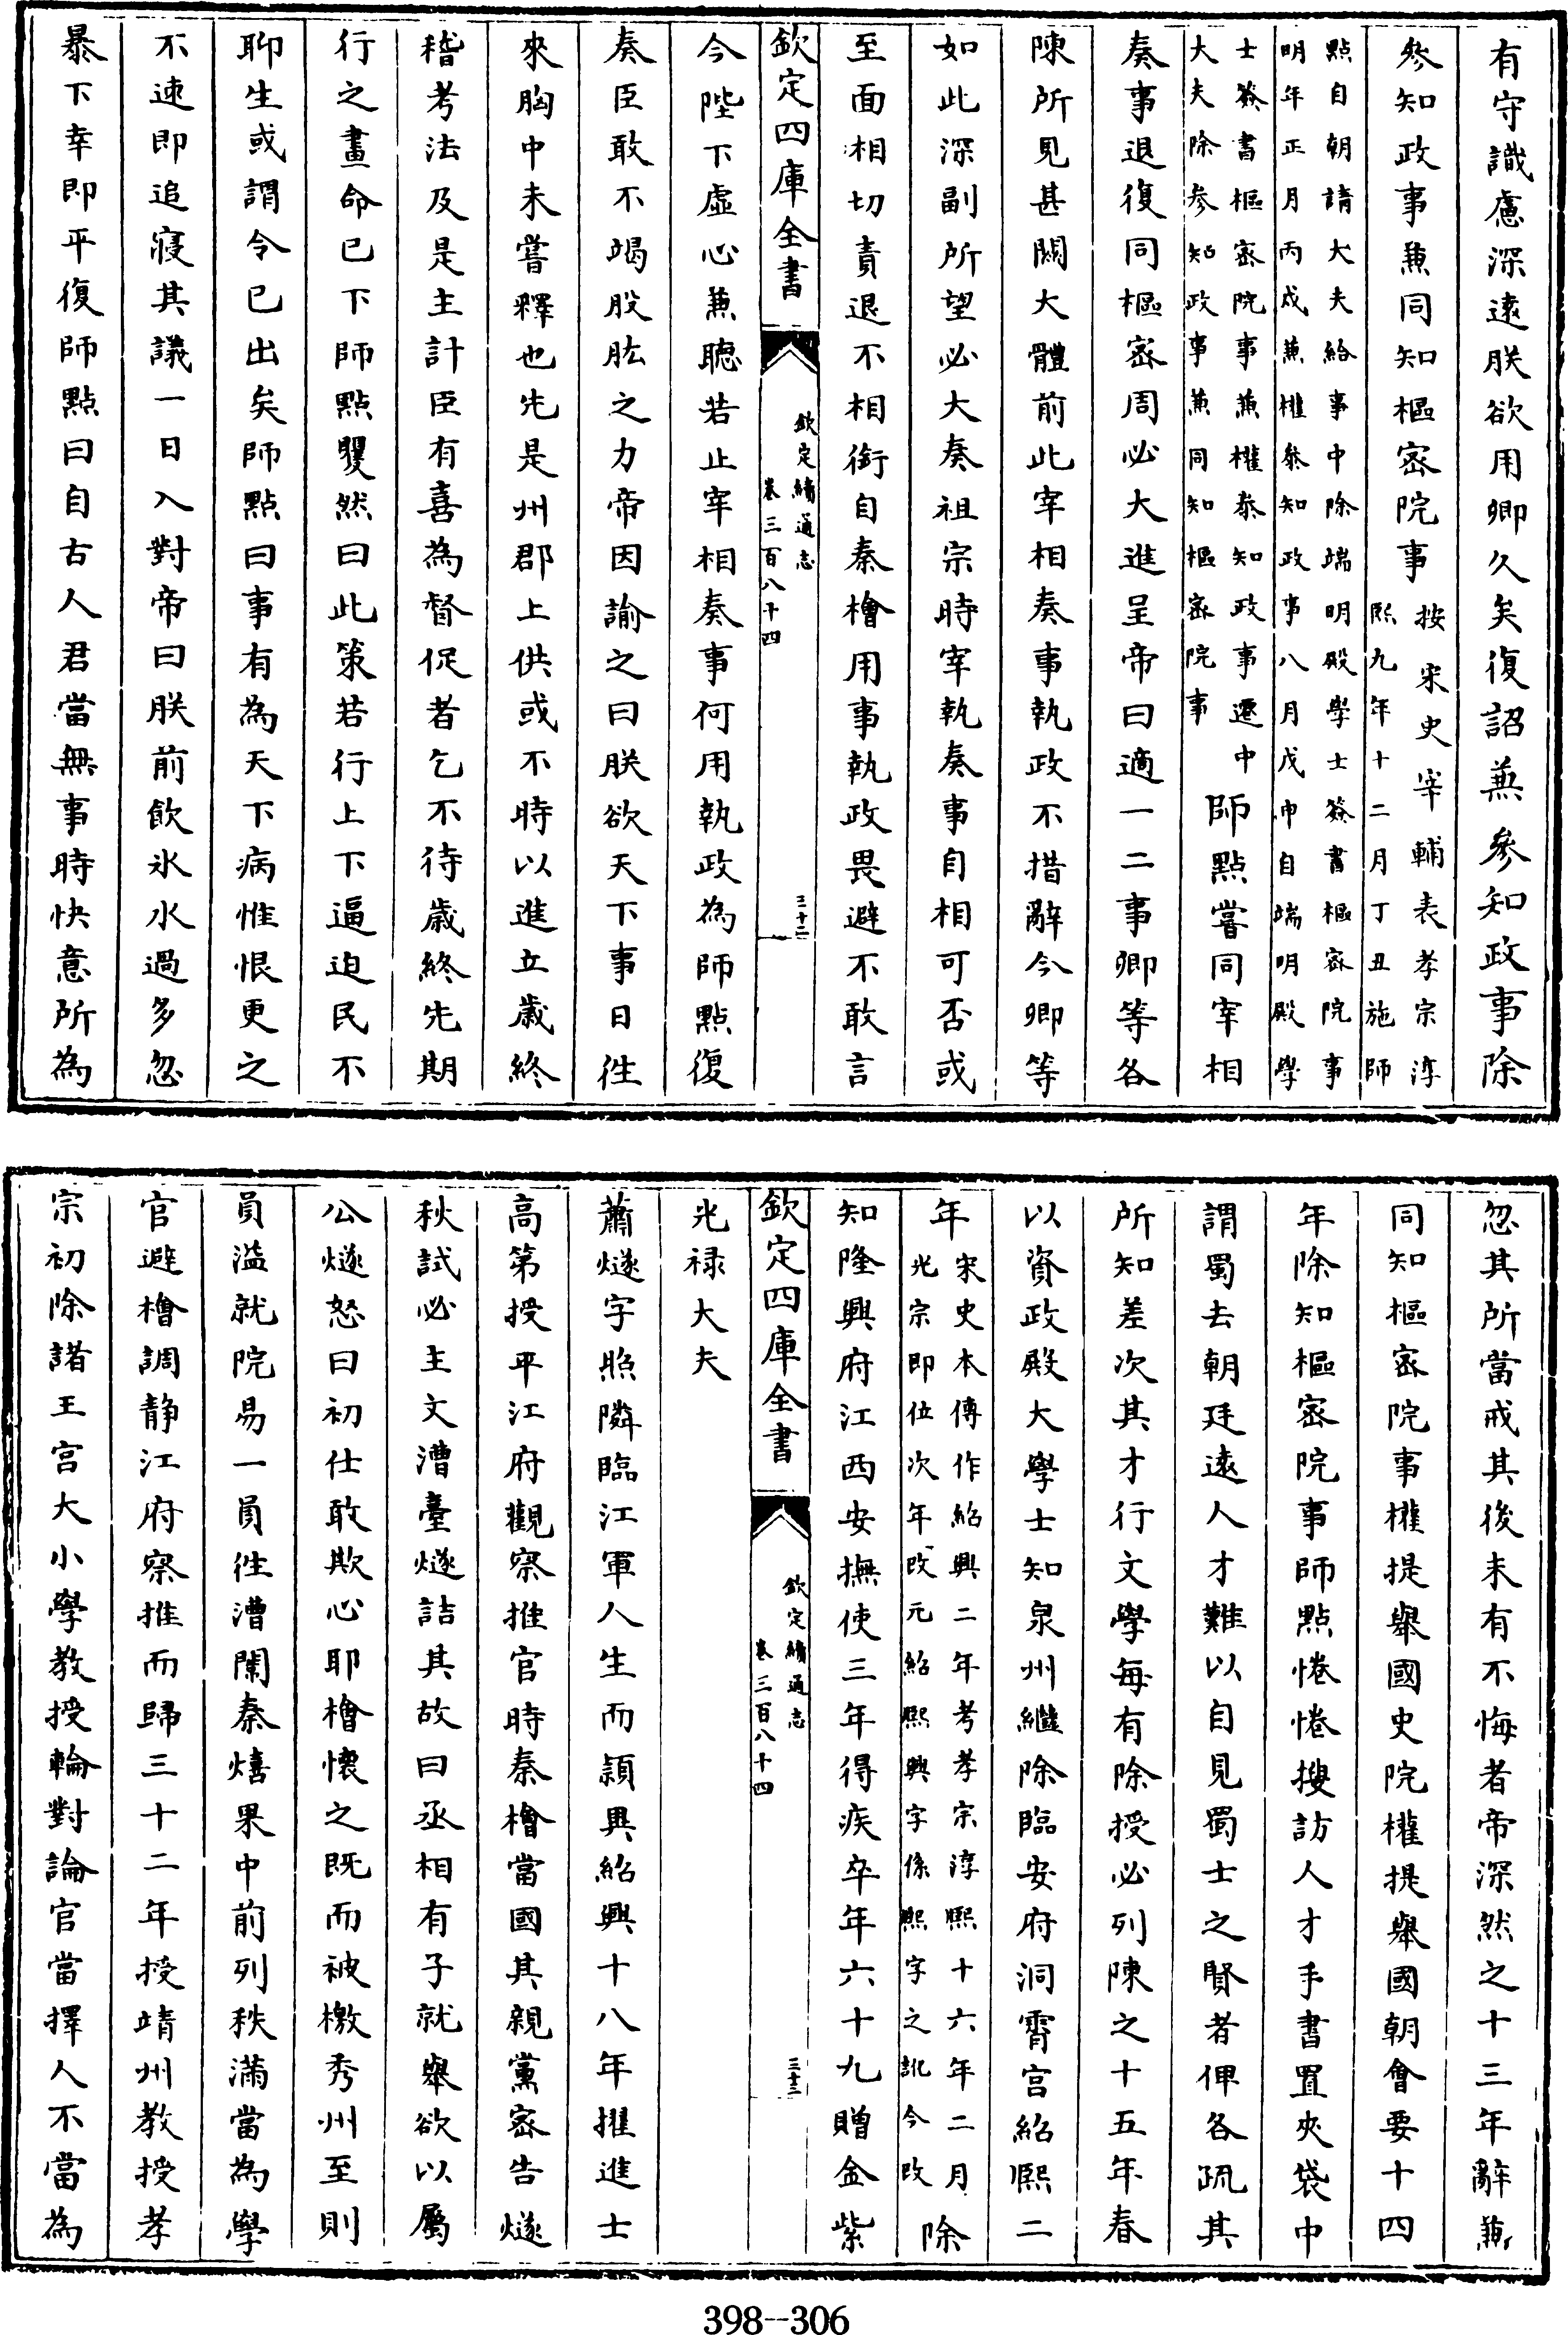 有守識慮深遠朕欲用卿久矣復詔兼參知政事除
參知政事兼同知樞密院事
按宋史宰輔表孝宗淳
熙九年十二月丁丑施師
點自朝請大夫給事中除端明殿學士簽書樞密院事
明年正月丙戌兼權參知政事八月戊申自端明殿學
士簽書樞密院事兼權參知政事遷中
大夫除參知政事兼同知樞密院事
師點嘗同宰相
奏事退復同樞密周必大進呈帝曰適一二事卿等各
陳所見甚關大體前此宰相奏事執政不措辭今卿等
如此深副所望必大奏祖宗時宰執奏事自相可否或
至面相切責退不相銜自秦檜用事執政畏避不敢言
欽定四庫全書
欽定續通志
卷三百八十四
三十二
今陛下虛心兼聽若止宰相奏事何用執政為師點復
奏臣敢不竭股肱之力帝因諭之曰朕欲天下事日往
來胸中未嘗釋也先是州郡上供或不時以進立歲終
稽考法及是主計臣有喜為督促者乞不待歲終先期
行之畫命已下師點矍然曰此策若行上下逼迫民不
聊生或謂令已出矣師點曰事有為天下病惟恨更之
不速即追寢其議一日入對帝曰朕前飲氷水過多忽
暴下幸即平復師點曰自古人君當無事時快意所為
忽其所當戒其後未有不悔者帝深然之十三年辭兼
同知樞密院事權提舉國史院權提舉國朝會要十四
年除知樞密院事師點惓惓搜訪人才手書置夾袋中
謂蜀去朝廷遠人才難以自見蜀士之賢者俾各疏其
所知差次其才行文學每有除授必列陳之十五年春
以資政殿大學士知泉州繼除臨安府洞霄宮紹熙二
年
宋史本傳作紹興二年考孝宗淳熙十六年二月
光宗即位次年改元紹熙興字係熙字之訛今改
除
知隆興府江西安撫使三年得疾卒年六十九贈金紫
欽定四庫全書
欽定續通志
卷三百八十四
三十三
光祿大夫
蕭燧字照隣臨江軍人生而頴異紹興十八年擢進士
高第授平江府觀察推官時秦檜當國其親黨密告燧
秋試必主文漕臺燧詰其故曰丞相有子就舉欲以屬
公燧怒曰初仕敢欺心耶檜懷之既而被檄秀州至則
員溢就院易一員往漕闈秦熺果中前列秩滿當為學
官避檜調静江府察推而歸三十二年授靖州教授孝
宗初除諸王宮大小學教授輪對論官當擇人不當為
398--306